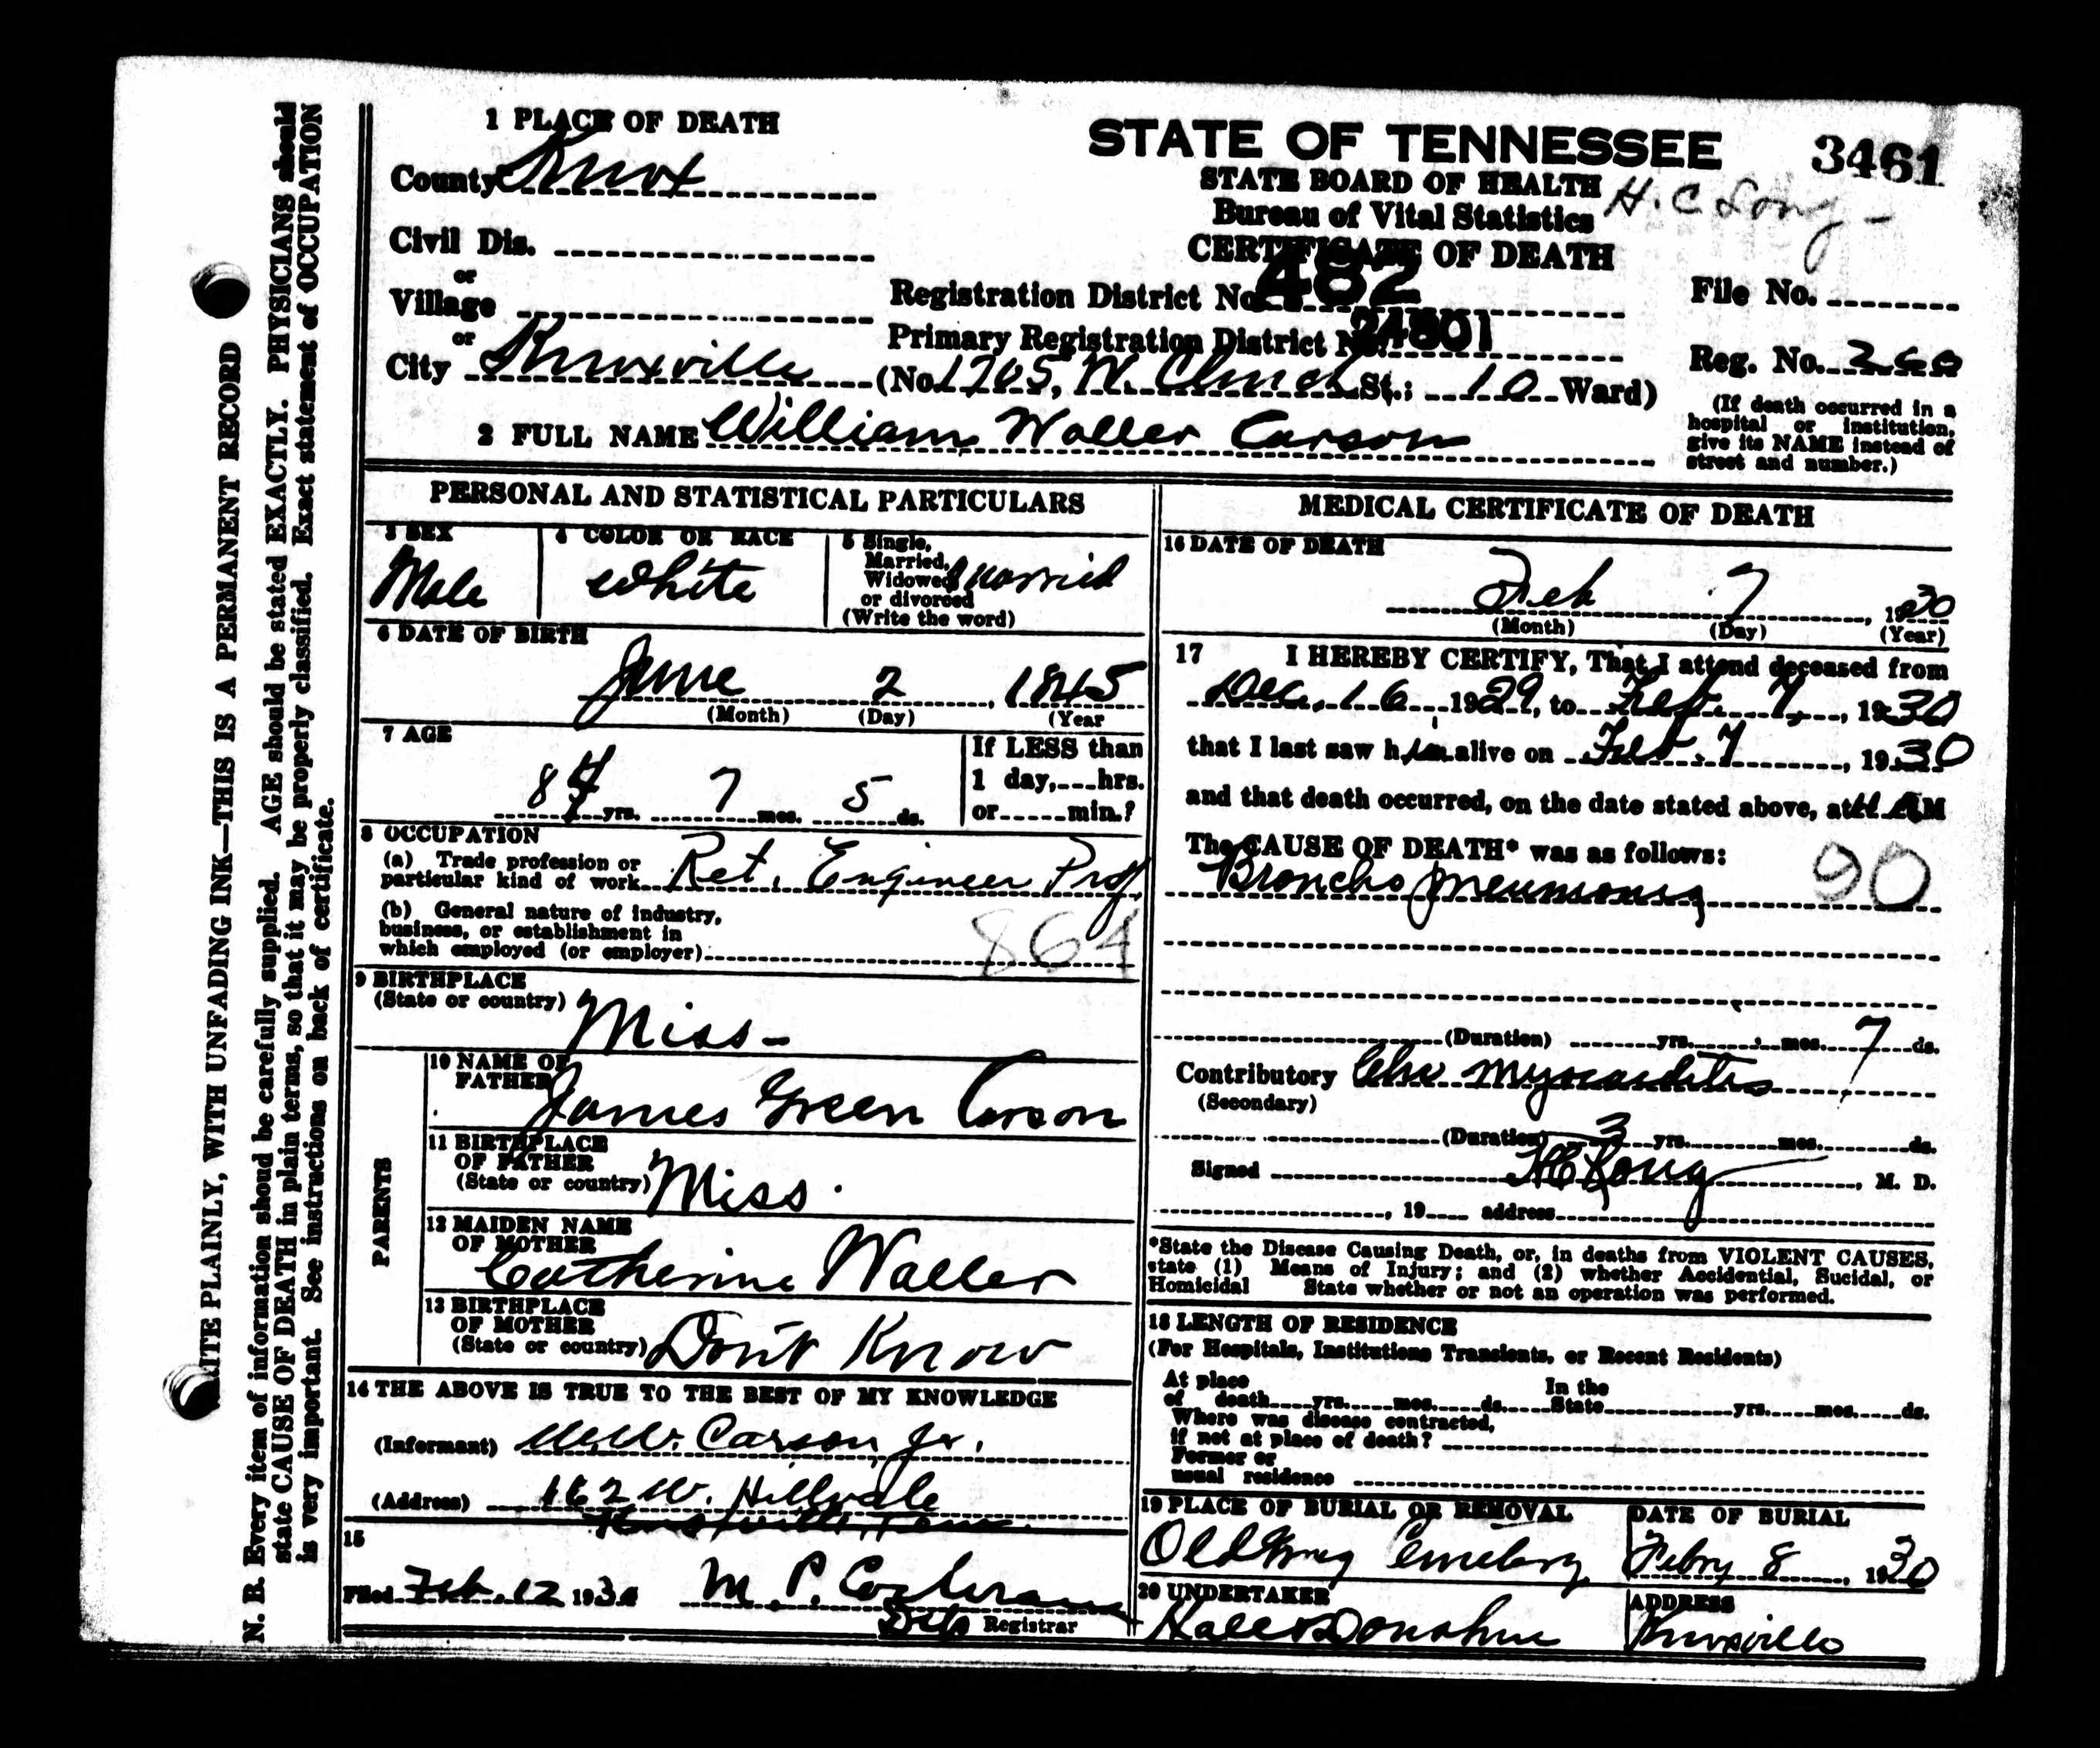 1 PLACE OF DEATH
County Knox
Civil Dis.
or
Village
or
City Knoxville (No. 1705, W. Clinch St.; 10 Ward)
STATE OF TENNESSEE 3461
STATE BOARD OF HEALTH H. C. Long
Bureau of Vital Statistics
CERTIFICATE OF DEATH
Registration District No. 482
Primary Registration District No. 24801
File No.
Reg. No. 260
(If death occurred in a
hospital or institution,
give its NAME instead of
street and number.)
2 FULL NAME William Waller Carson
PERSONAL AND STATISTICAL PARTICULARS
3 SEX
Male
4 COLOR OR RACE
White
5 Single,
Married,
Widowed
or divorced
(Write the word)
Married
6 DATE OF BIRTH
June 2, 1845
(Month) (Day) (Year
7 AGE
84 yrs. 7 mos. 5 ds.
If LESS than
1 day, hrs.
or min.?
8 OCCUPATION
(a) Trade profession or
particular kind of work Ret. Engineer Prof
(b) General nature of industry,
business, or establishment in
which employed (or employer)
864
9 BIRTHPLACE
(State or country) Miss
PARENTS
10 NAME OF
FATHER James Green Carson
11 BIRTHPLACE
OF FATHER
(State or country) Miss.
12 MAIDEN NAME
OF MOTHER
Catherine Waller
13 BIRTHPLACE
OF MOTHER
(State or country) Don't Know
14 THE ABOVE IS TRUE TO THE BEST OF MY KNOWLEDGE
(Informant) W.W. Carson, Jr.
(Address) 162 W. Hillvale
Knoxville, Tenn.
15
Filed Feb. 12 1930 M. P. Cochrane
Dep Registrar
MEDICAL CERTIFICATE OF DEATH
16 DATE OF DEATH
Feb 7, 1930
(Month) (Day) (Year)
17 I HEREBY CERTIFY, That I attend deceased from
Dec. 16 1929, to Feb. 7, 1930
that I last saw him alive on Feb. 7, 1930
and that death occurred, on the date stated above, at M
The CAUSE OF DEATH* was as follows:
Broncho pneumonia 90
(Duration) yrs. mos. 7 ds.
Contributory Chr Myocarditis
(Secondary)
(Duration) 3 yrs. mos. ds.
Signed H C Long, M. D.
, 19 address
*State the Disease Causing Death, or, in deaths from VIOLENT CAUSES,
state (1) Means of Injury; and (2) whether Accidential, Sucidal, or
Homicidal State whether or not an operation was performed.
18 LENGTH OF RESIDENCE
(For Hospitals, Institutions Transients, or Recent Residents)
At place In the
of death yrs. mos. ds. State yrs. mos. ds.
Where was disease contracted,
if not at place of death?
Former or
usual residence
19 PLACE OF BURIAL OR REMOVAL
Old Gray Cemetery
DATE OF BURIAL
Febry 8, 1930
20 UNDERTAKER
Donahue
ADDRESS
Knoxville
WRITE PLAINLY, WITH UNFADING INK—THIS IS A PERMANENT RECORD
N. B. Every item of information should be carefully supplied. AGE should be stated EXACTLY. PHYSICIANS should
state CAUSE OF DEATH in plain terms, so that it may be properly classified. Exact statement of OCCUPATION
is very important. See instructions on back of certificate.